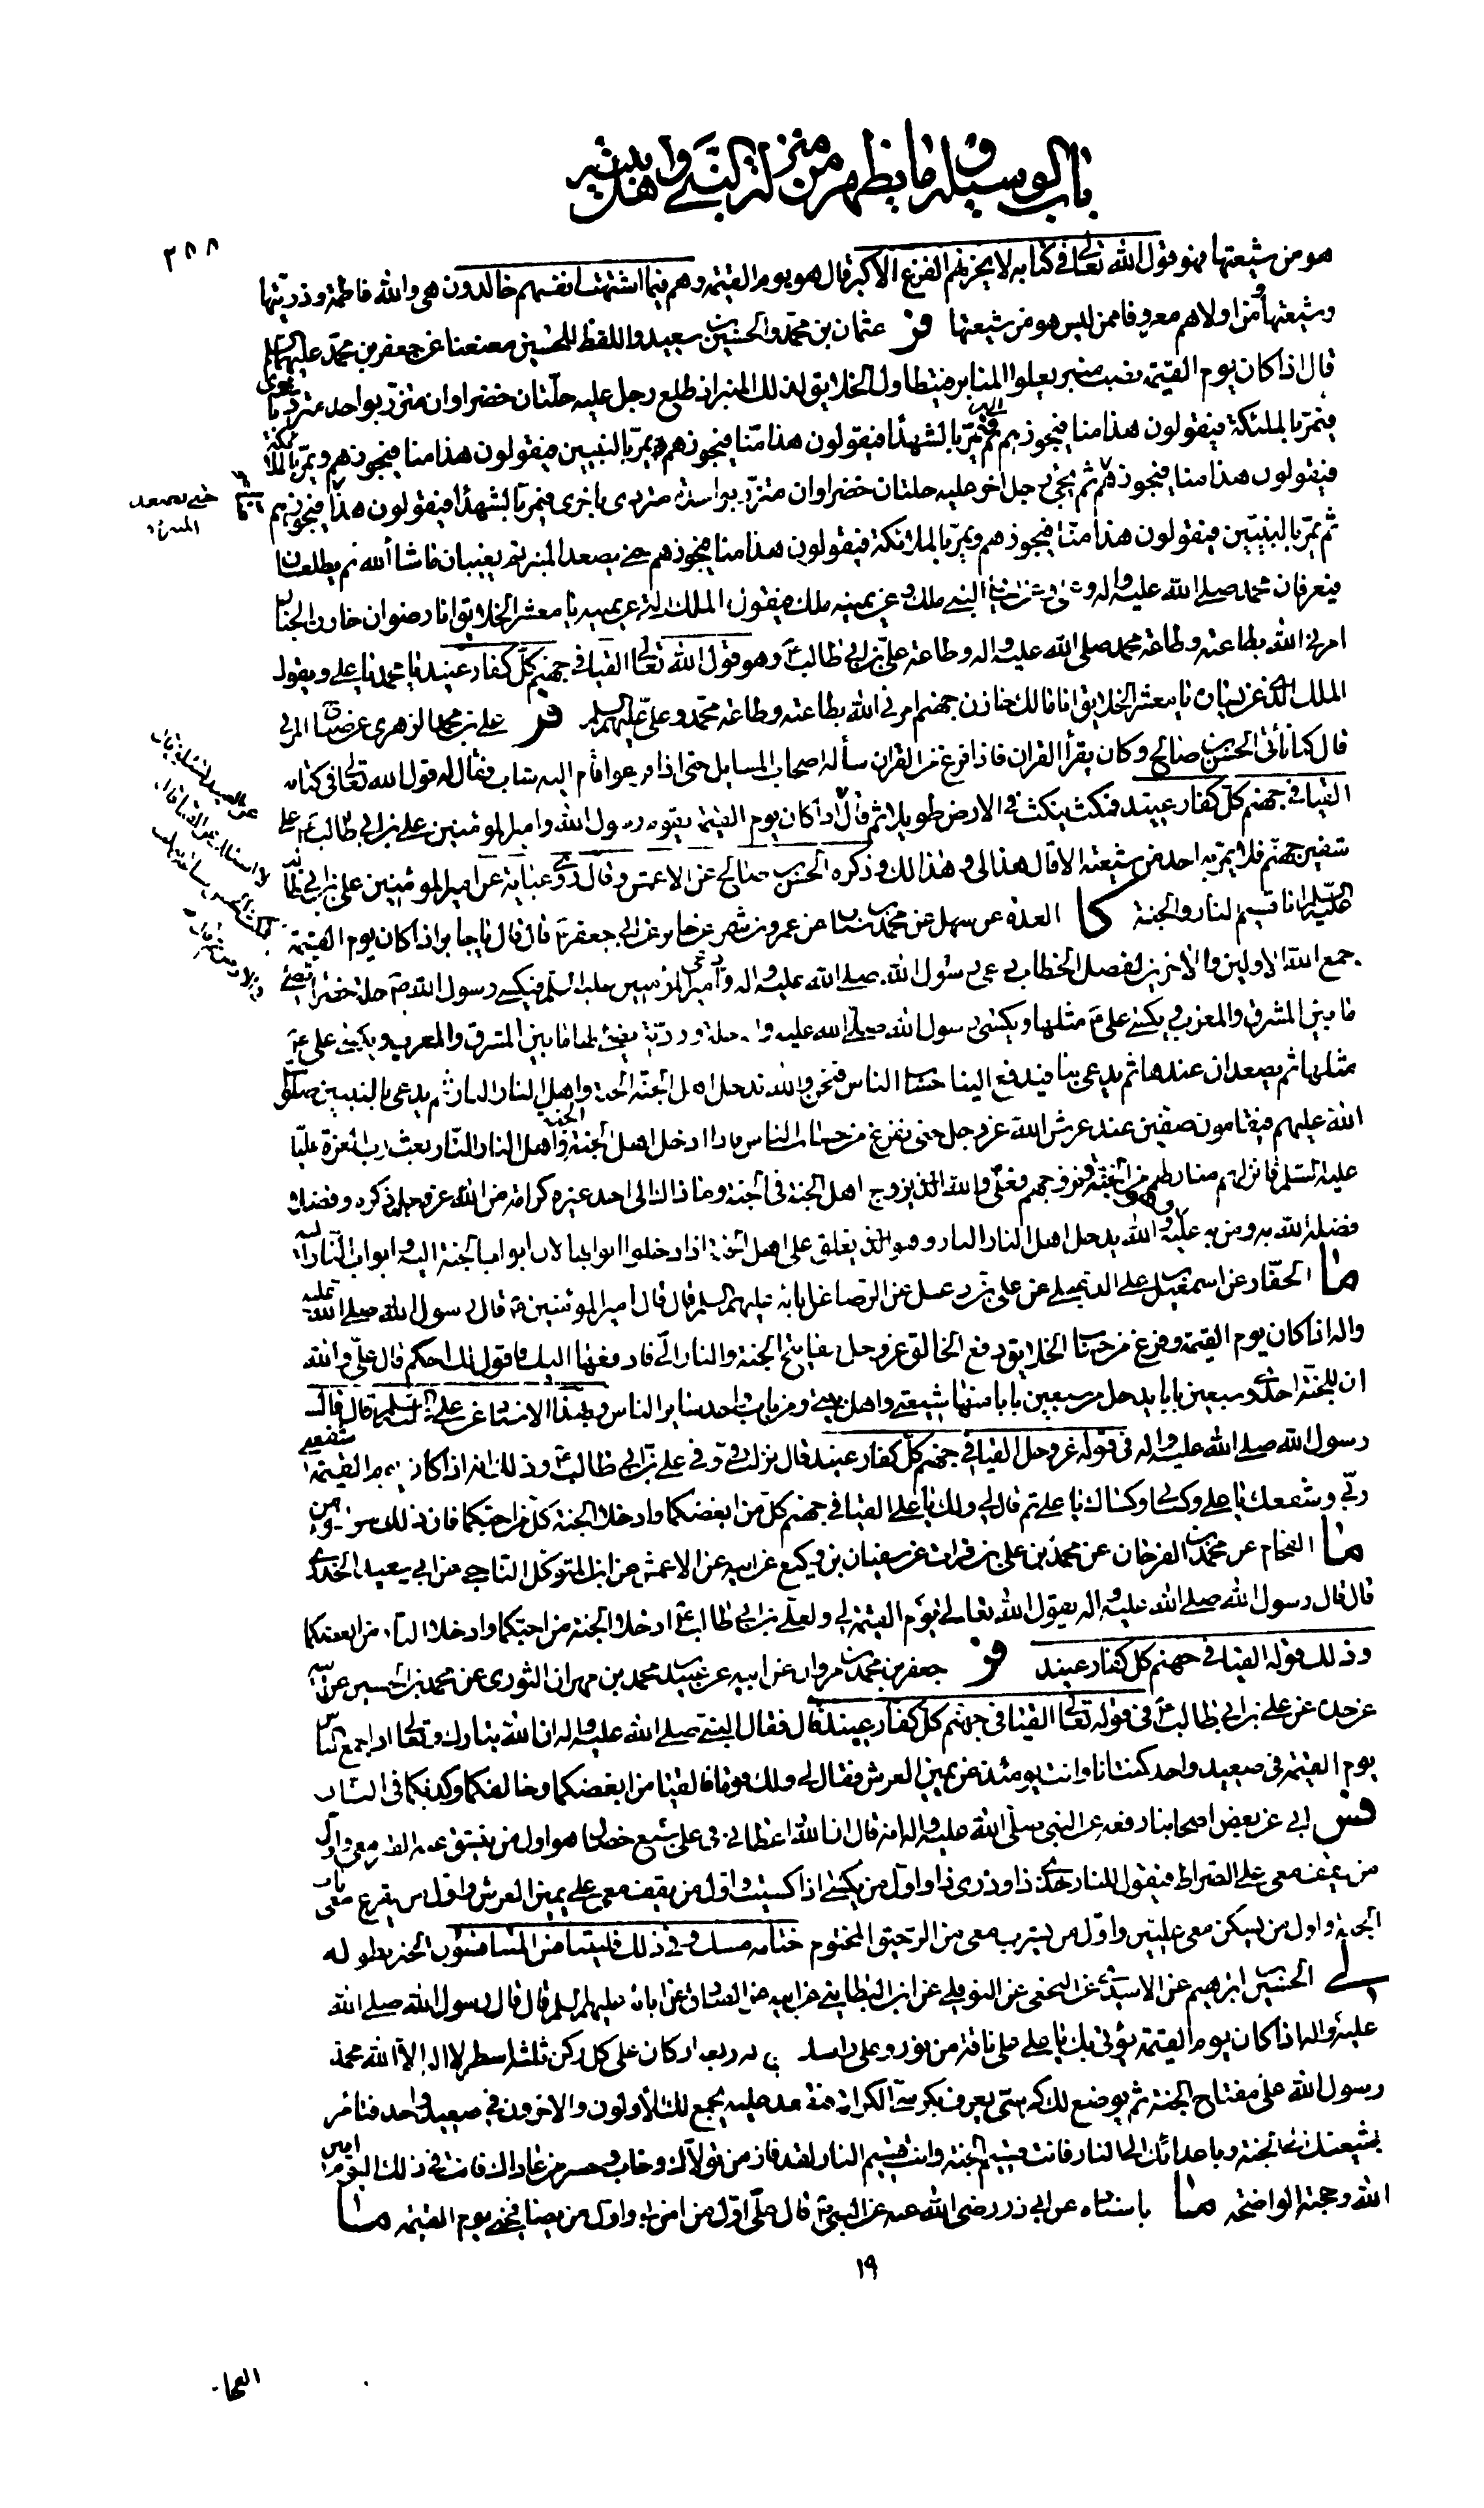 باب الوسيلة وما يظهر من منزلة النبي واهل بيته
٣٨٨
هو من شيعتها فهو قول الله تعالى في كتابه لا يحزنهم الفزع الاكبر قال هو يوم القيمة وهم فيما اشتهت انفسهم خالدون هي والله فاطمة وذريتها
وشيعتها ومن اولاهم معروفا ممن ليس هو من شيعتها فر عثمان بن محمد والحسين بن سعيد واللفظ للحسين معنعنا عن جعفر بن محمد عليهما السلم
قال اذا كان يوم القيمة نصب منبر يعلوا المنابر فيتطاول الخلايق لذلك المنبر اذ طلع رجل عليه حلتان خضراوان متزر بواحدة مترد باخرى
فيمر بالملئكة فيقولون هذا منا فيجوزهم ثم يمر بالشهدا فيقولون هذا منا فيجوزهم ويمر بالنبيين فيقولون هذا منا فيجوزهم ويمر بالملائكة
فيقولون هذا منا فيجوزهم ثم يجئ رجل اخر عليه حلتان خضراوان متزر بواحدة مترد باخرى فيمر بالشهدا فيقولون هذا منا فيجوزهم
حتى يصعد المنبر
ثم يمر بالنبيين فيقولون هذا منا فيجوزهم ويمر بالملائكة فيقولون هذا منا فيجوزهم حتى يصعد المنبر ثم يغيبان ما شا الله ثم يطلعان
فيعرفان محمد صلى الله عليه واله وعلى وعن يسار النبي ملك وعن يمينه ملك فيقول الملك الذي عن يمينه يا معشر الخلايق انا رضوان خازن الجنان
امرني الله بطاعته وطاعة محمد صلى الله عليه واله وطاعة علي بن ابي طالب ع وهو قول الله تعالى القيا في جهنم كل كفار عنيد يا محمد يا علي ويقول
الملك الذي عن يساره يا معشر الخلايق انا مالك خازن جهنم امرني الله بطاعته وطاعة محمد وعلي عليهما السلم فر علي بن محمد الزهري عن صباح المزني
قال كنا ناتي الحسن بن صالح وكان يقرأ القران فاذا فرغ من القران سأله اصحاب المسايل حتى اذا فرغوا قام اليه شاب فقال له قول الله تعالى في كتابه
القيا في جهنم كل كفار عنيد فمكث ينكث في الارض طويلا ثم قال اذا كان يوم القيمة يقوم رسول الله وامير المومنين علي بن ابي طالب ع على
شفير جهنم فلا يمر به احد من شيعته الا قال هذا لي وهذا لك وذكره الحسن بن صالح عن الاعمش وقال روى عباية عن امير المومنين علي بن ابي طالب
عليه السلم انا قسيم النار والجنة كا العدة عن سهل عن محمد بن سنان عن عمرو بن شمر عن جابر عن ابي جعفر ع قال قال يا جابر اذا كان يوم القيمة
جمع الله الاولين والاخرين لفصل الخطاب دعي رسول الله صلى الله عليه واله ودعي امير المؤمنين عليه السلم فيكسى رسول الله ص حلة خضرا تضئ
ما بين المشرق والمغرب ويكسى علي ع مثلها ويكسى رسول الله صلى الله عليه واله حلة وردية يضئ لها ما بين المشرق والمغرب ويكسى علي ع
مثلها ثم يصعدان عندها ثم يدعى بنا فيدفع الينا حساب الناس فنحن والله ندخل اهل الجنة الجنة واهل النار النار ثم يدعى بالنبيين صلوات
الله عليهم فيقامون صفين عند عرش الله عز وجل حتى نفرغ من حساب الناس فاذا ادخل اهل الجنة الجنة واهل النار النار بعث رب العزة عليا
عليه السلم فانزلهم منازلهم من الجنة وزوجهم فعلي والله الذي يزوج اهل الجنة في الجنة وما ذاك الى احد غيره كرامة من الله عز وجل ذكره وفضلا
فضله الله به ومن به عليه وهو والله يدخل اهل النار النار وهو الذي يغلق على اهل الجنة اذا دخلوا ابوابها لان ابواب الجنة اليه وابواب النار اليه
ما الحفار عن اسمعيل بن علي الدعبلي عن علي بن دعبل عن الرضا عن ابائه عليهم السلم قال قال امير المومنين ع قال رسول الله صلى الله عليه
واله اذا كان يوم القيمة وفرغ من حساب الخلايق دفع الخالق عز وجل مفاتيح الجنة والنار الي فادفعها اليك فاقول لك احكم قال علي والله
ان للجنة احدى وسبعين بابا يدخل من سبعين بابا منها شيعتي واهل بيتي ومن باب واحد ساير الناس وبهذا الاسناد عن علي عليه السلم قال قال
رسول الله صلى الله عليه واله في قوله عز وجل القيا في جهنم كل كفار عنيد قال نزلت في وفي علي بن ابي طالب ع وذلك انه اذا كان يوم القيمة شفعني
ربي وشفعك يا علي وكساني وكساك يا علي ثم قال لي ولك يا علي القيا في جهنم كل من ابغضكما وادخلا الجنة كل من احبكما فان ذلك هو المومن
ما الفحام عن محمد بن الفرخان عن محمد بن علي بن فرات عن سفيان بن وكيع عن ابيه عن الاعمش عن ابن المتوكل الناجي عن ابي سعيد الخدري
قال قال رسول الله صلى الله عليه واله يقول الله تعالى يوم القيمة لي ولعلي بن ابي طالب ع ادخلا الجنة من احبكما وادخلا النار من ابغضكما
وذلك قوله القيا في جهنم كل كفار عنيد فر جعفر بن محمد بن مروان عن ابيه عن عبيد بن محمد بن مهران الثوري عن محمد بن الحسين عن ابيه
عن جده عن علي بن ابي طالب ع في قوله تعالى القيا في جهنم كل كفار عنيد قال فقال النبي صلى الله عليه واله ان الله تبارك وتعالى اذا جمع الناس
يوم القيمة في صعيد واحد كنت انا وانت يومئذ عن يمين العرش فقال لي ولك قوما فالقيا من ابغضكما وخالفكما وكذبكما في النار
فس ابي عن بعض اصحابنا رفعه عن النبي صلى الله عليه واله انه قال ان الله اعطاني في علي سبع خصال هو اول من ينشق عنه القبر معي واول
من يقف معي على الصراط فيقول للنار خذي ذا وذري ذا واول من يكسى اذا كسيت واول من يقف معي على يمين العرش واول من يقرع معي باب
الجنة واول من يسكن معي عليين واول من يشرب معي من الرحيق المختوم ختامه مسك وفي ذلك فليتنافس المتنافسون الخبر بطوله
لى الحسين بن ابراهيم عن الاسدي عن النخعي عن النوفلي عن ابن البطايني عن ابيه عن الصادق عن ابائه عليهم السلم قال قال رسول الله صلى الله
عليه واله اذا كان يوم القيمة يؤتى بك يا علي على ناقة من نور وعلى راسك تاج له اربعة اركان على كل ركن ثلثة اسطر لا اله الا الله محمد
رسول الله علي مفتاح الجنة ثم يوضع لك كرسي يعرف بكرسي الكرامة فتقعد عليه يجمع لك الاولون والاخرون في صعيد واحد فتامر
بشيعتك الى الجنة وباعدائك الى النار فانت قسيم الجنة وانت قسيم النار لقد فاز من تولاك وخاب وخسر من عاداك فانت في ذلك اليوم امين
الله وحجته الواضحة ما باسناده عن ابي ذر رضى الله عنه عن النبي ص قال علي اول من امن بي واول من يصافحني يوم القيمة ما
١٩
الفحا